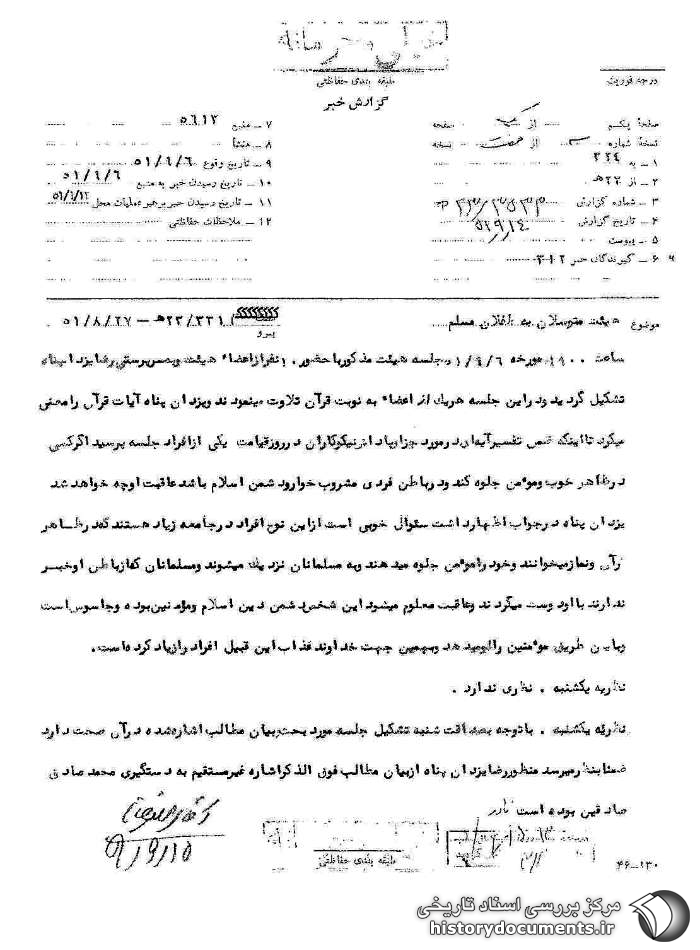 خیلی محرمانه
طبقه بندی حفاظتی
درجه فوریت
گزارش خبر
صفحهٔ یکم از یک صفحه
نسخهٔ شماره از هفت نسخه
۱ ـ به ۳۲۴
۲ ـ از ۲۲هـ
۳ ـ شماره گزارش
۴ ـ تاریخ گزارش
۵ ـ پیوست
۶ ـ گیرندگان خبر ۳۱۲
۷ ـ منبع ۵۶۱۲
۸ ـ منشأ
۹ ـ تاریخ وقوع ۵۱/۹/۶
۱۰ ـ تاریخ رسیدن خبر به منبع ۵۱/۹/۶
۱۱ ـ تاریخ رسیدن خبر برهبر عملیات محل
۱۲ ـ ملاحظات حفاظتی
موضوع هیئت متوسلان به طفلان مسلم
پیرو ۲۲/۳۳۱هـ ـ ۵۱/۸/۲۷
ساعت ۱۸۰۰ مورخه ۵۱/۹/۶ جلسه هیئت مذکور با حضور ۱۰ نفر از اعضاء هیئت و بسرپرستی رضا یزدانپناه
تشکیل گردید در این جلسه هریك از اعضاء به نوبت قرآن تلاوت مینمودند و یزدان پناه آیات قرآن را معنی
میکرد تا اینکه ضمن تفسیر آیه‌ای در مورد جزا و پاداش نیکوکاران در روز قیامت یکی از افراد جلسه پرسید اگر کسی
در ظاهر خوب و مومن جلوه کند و در باطن فردی مشروب خوار و دشمن اسلام باشد عاقبت او چه خواهد شد
یزدان پناه در جواب اظهار داشت سئوال خوبی است از این نوع افراد در جامعه زیاد هستند که در ظاهر
قرآن و نماز میخوانند و خود را مومن جلوه میدهند و به مسلمانان نزدیك میشوند و مسلمانان که از باطن او خبر
ندارند با او دوست میگردند و عاقبت معلوم میشود این شخص دشمن دین اسلام و مومنین بوده و جاسوس است
و باین طریق مومنین را لو میدهد و بهمین جهت خداوند عذاب این قبیل افراد را زیاد کرده است.
نظریه یکشنبه . نظری ندارد .
نظریه یکشنبه . با توجه بصداقت شنبه تشکیل جلسه مورد بحث و بیان مطالب اشاره شده در آن صحت دارد
ضمنا بنظر میرسد منظور رضا یزدان پناه از بیان مطالب فوق الذکر اشاره غیر مستقیم به دستگیری محمد صادق
صادقین بوده است نادر
۵۱/۹/۱۵
طبقه بندی حفاظتی
۴۶ـ۱۳۰
مرکز بررسی اسناد تاریخی
historydocuments.ir